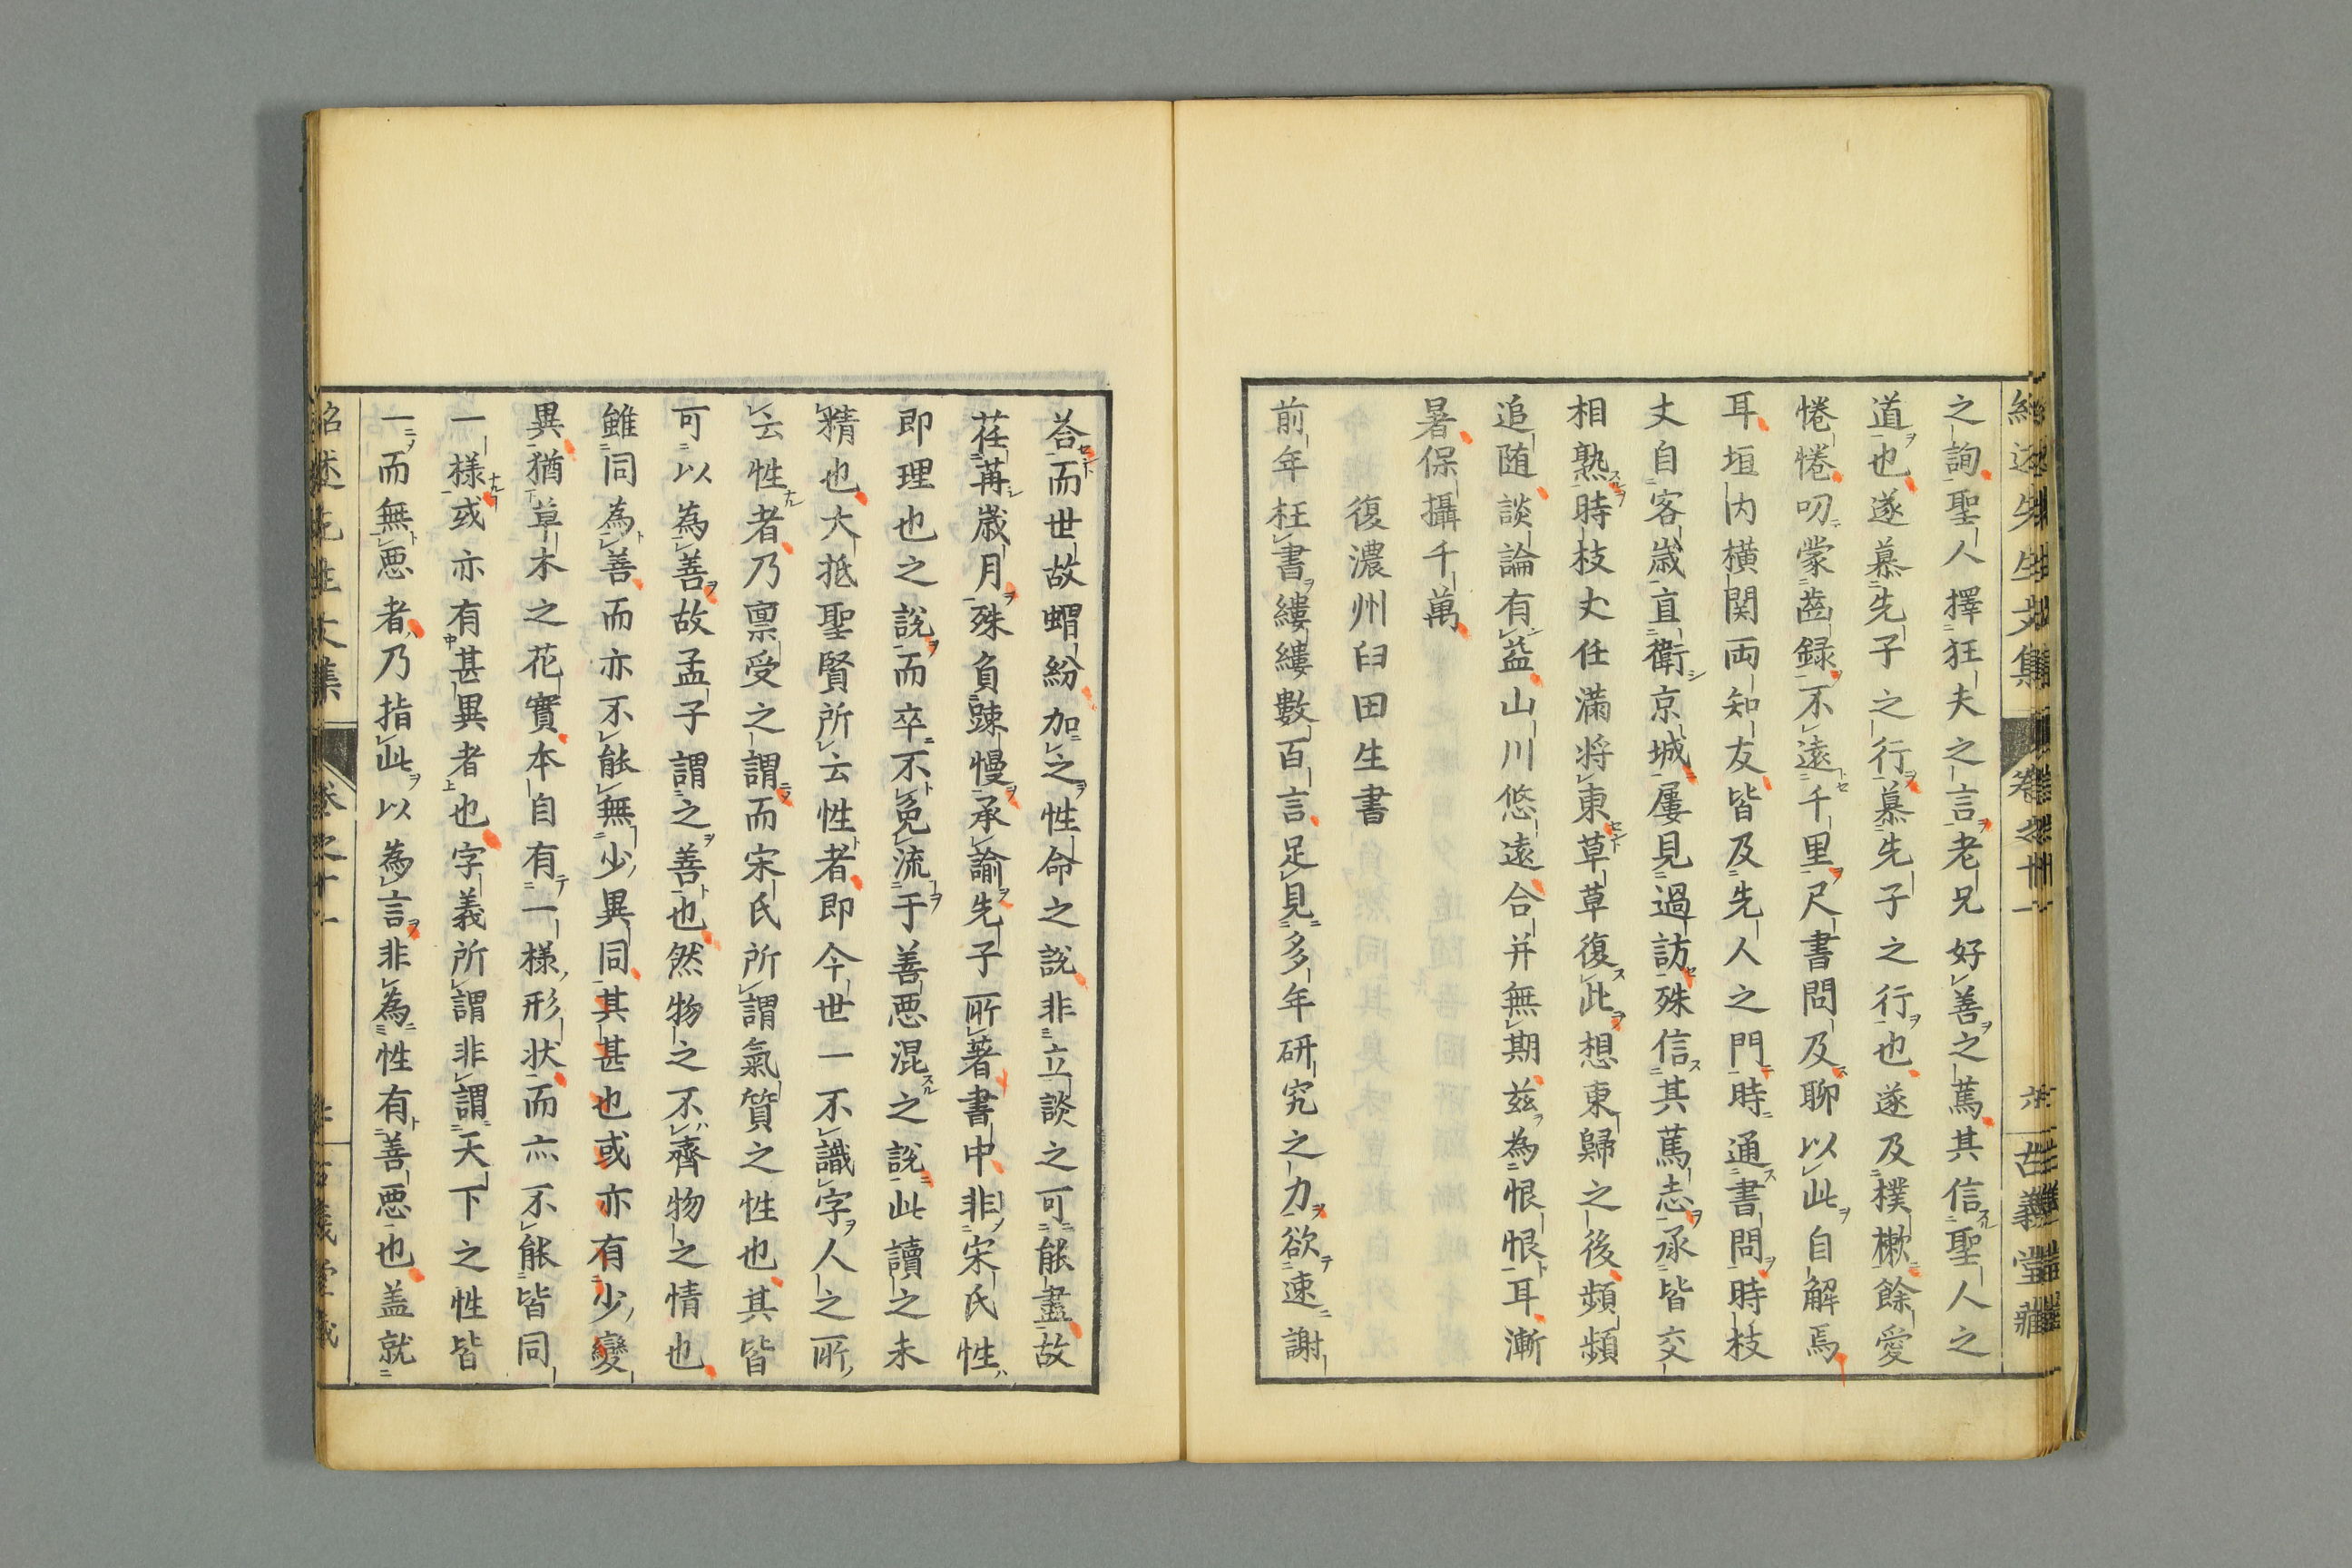 紹述先生文集 卷之十一 六 古義堂藏
之詢聖人擇狂夫之言老兄好善之篤其信聖人之
道也遂慕先子之行慕先子之行也遂及樸樕餘愛
惓惓叨蒙齒録不遠千里尺書問及聊以此自解焉
耳垣内横関両知友皆及先人之門時通書問時枝
丈自客歳直衛京城屢見過訪殊信其篤志承皆交
相熟時枝丈任滿将東草草復此想東歸之後頻頻
追随談論有益山川悠遠合并無期兹為恨恨耳漸
暑保攝千萬
復濃州臼田生書
前年枉書縷縷數百言足見多年研究之力欲速謝
荅而世故蝟紛加之性命之說非立談之可能盡故
荏苒歳月殊負踈慢承諭先子所著書中非宋氏性
即理也之說而卒不免流于善悪混之說此讀之未
精也大抵聖賢所云性者即今世一不識字人之所
云性者乃禀受之謂而宋氏所謂氣質之性也其皆
可以為善故孟子謂之善也然物之不齊物之情也
雖同為善而亦不能無少異同其甚也或亦有少變
異猶草木之花實本自有一樣形状而亦不能皆同
一樣或亦有甚異者也字義所謂非謂天下之性皆
一而無悪者乃指此以為言非為性有善悪也盖就
紹述先生文集 卷之十一 古義堂藏